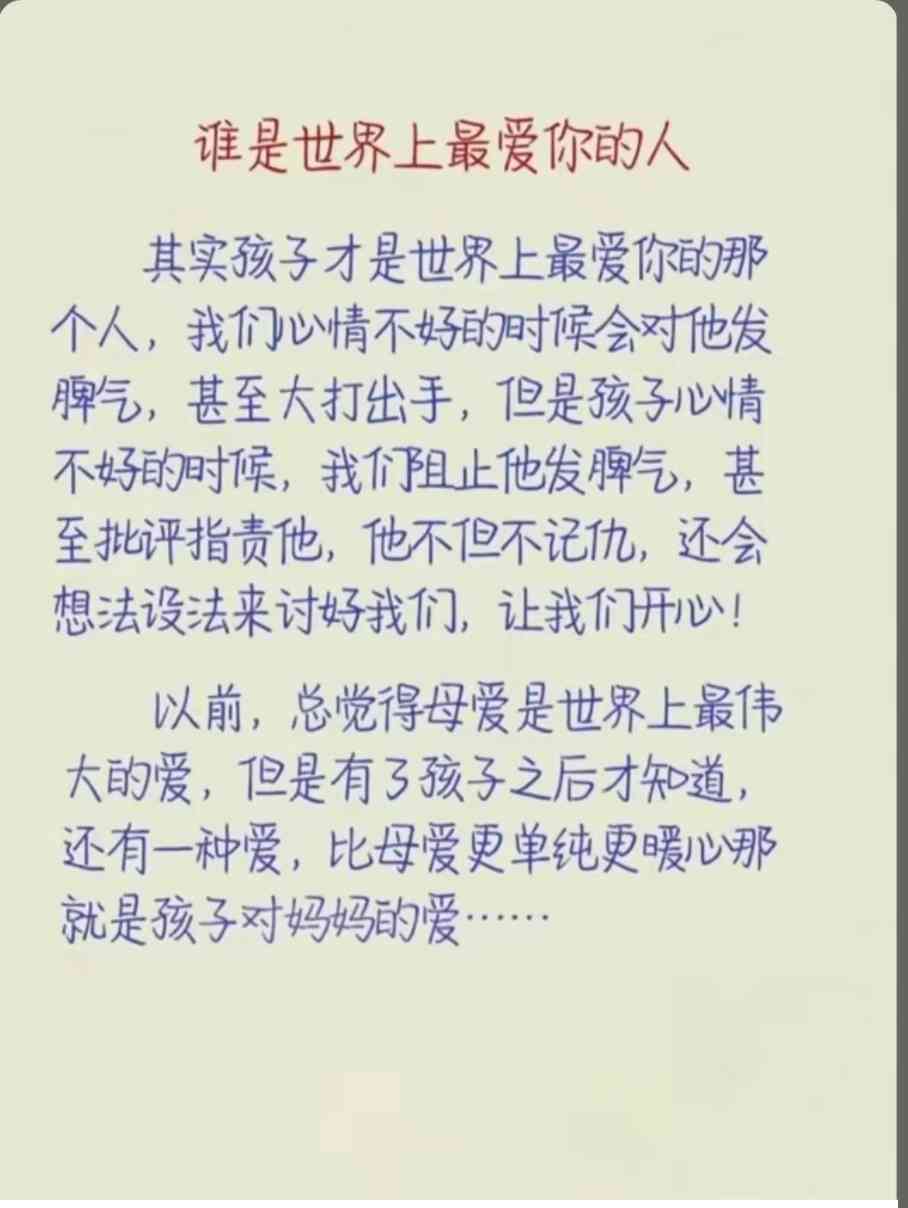 谁是世界上最爱你的人
其实孩子才是世界上最爱你的那
个人，我们心情不好的时候会对他发
脾气，甚至大打出手，但是孩子心情
不好的时候，我们阻止他发脾气，甚
至批评指责他，他不但不记仇，还会
想法设法来讨好我们，让我们开心！
以前，总觉得母爱是世界上最伟
大的爱，但是有了孩子之后才知道，
还有一种爱，比母爱更单纯更暖心那
就是孩子对妈妈的爱……